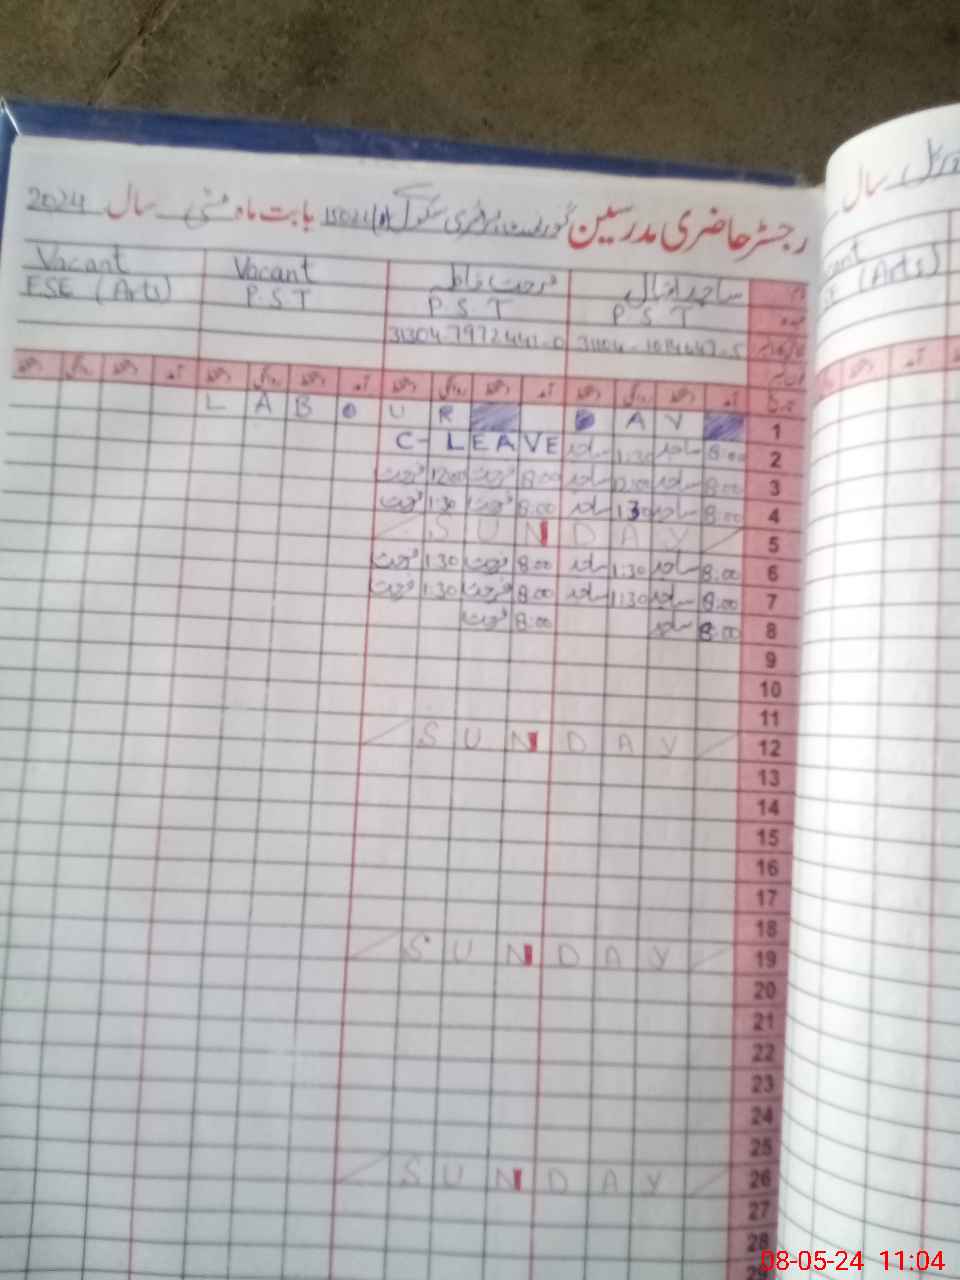 رجسٹر حاضری مدرسین گورنمنٹ پرائمری سکول بابت ماہ مئی سال 2024
ساجد اقبال Vacant Vacant
P.S.T P.S.T P.S.T ESE (Arts)
آمد دستخط روانگی دستخط آمد دستخط روانگی دستخط آمد دستخط روانگی دستخط آمد دستخط روانگی دستخط
1 L A B O U R D A Y
2 8:00 ساجد 1:30 ساجد C-LEAVE
3 8:00 ساجد 12:00 ساجد 8:00 فرحت 12:00 فرحت
4 8:00 ساجد 1:30 ساجد 8:00 فرحت 1:30 فرحت
5 S U N D A Y
6 8:00 ساجد 1:30 ساجد 8:00 فرحت 1:30 فرحت
7 8:00 ساجد 1:30 ساجد 8:00 فرحت 1:30 فرحت
8 8:00 ساجد 8:00 فرحت
9
10
11
12 S U N D A Y
13
14
15
16
17
18
19 S U N D A Y
20
21
22
23
24
25
26 S U N D A Y
27
28
29
سال
(Arts)
08-05-24 11:04